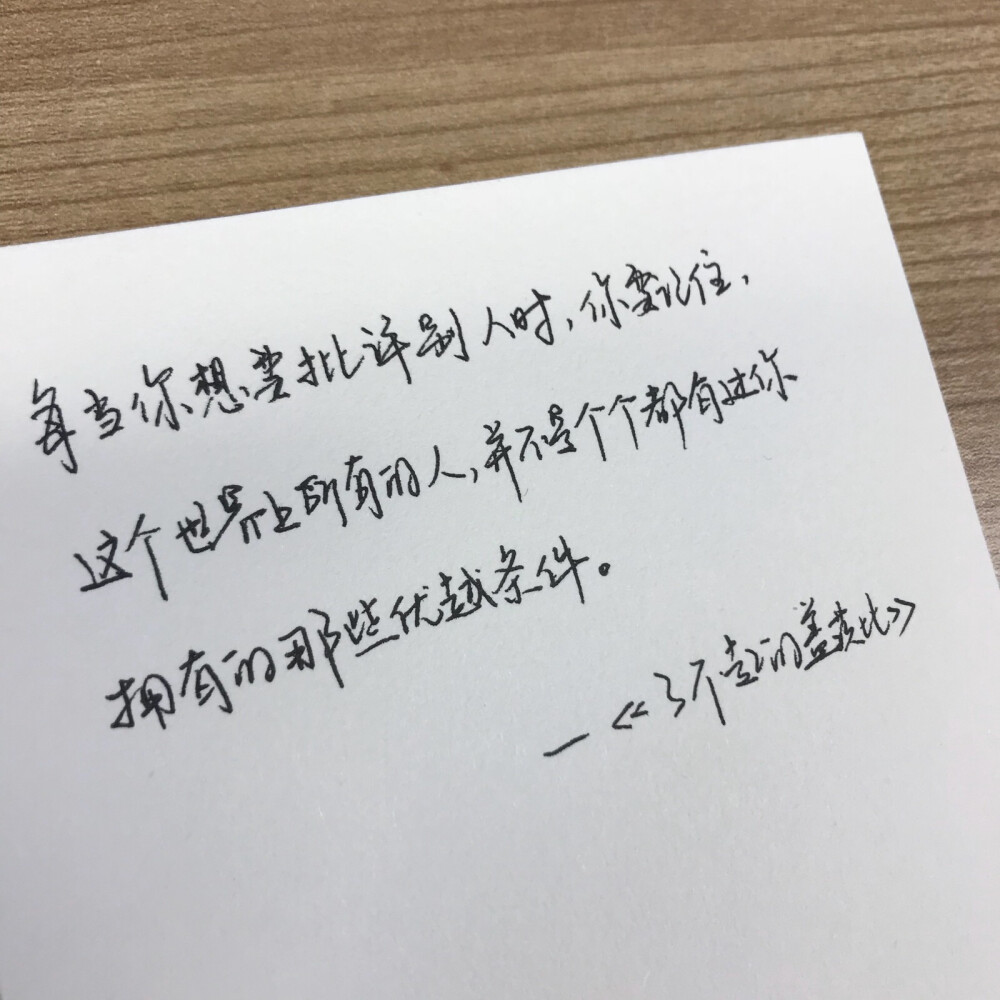 每当你想要批评别人时,你要记住,
这个世界上所有的人,并不是个个都有过你
拥有的那些优越条件。
—《了不起的盖茨比》